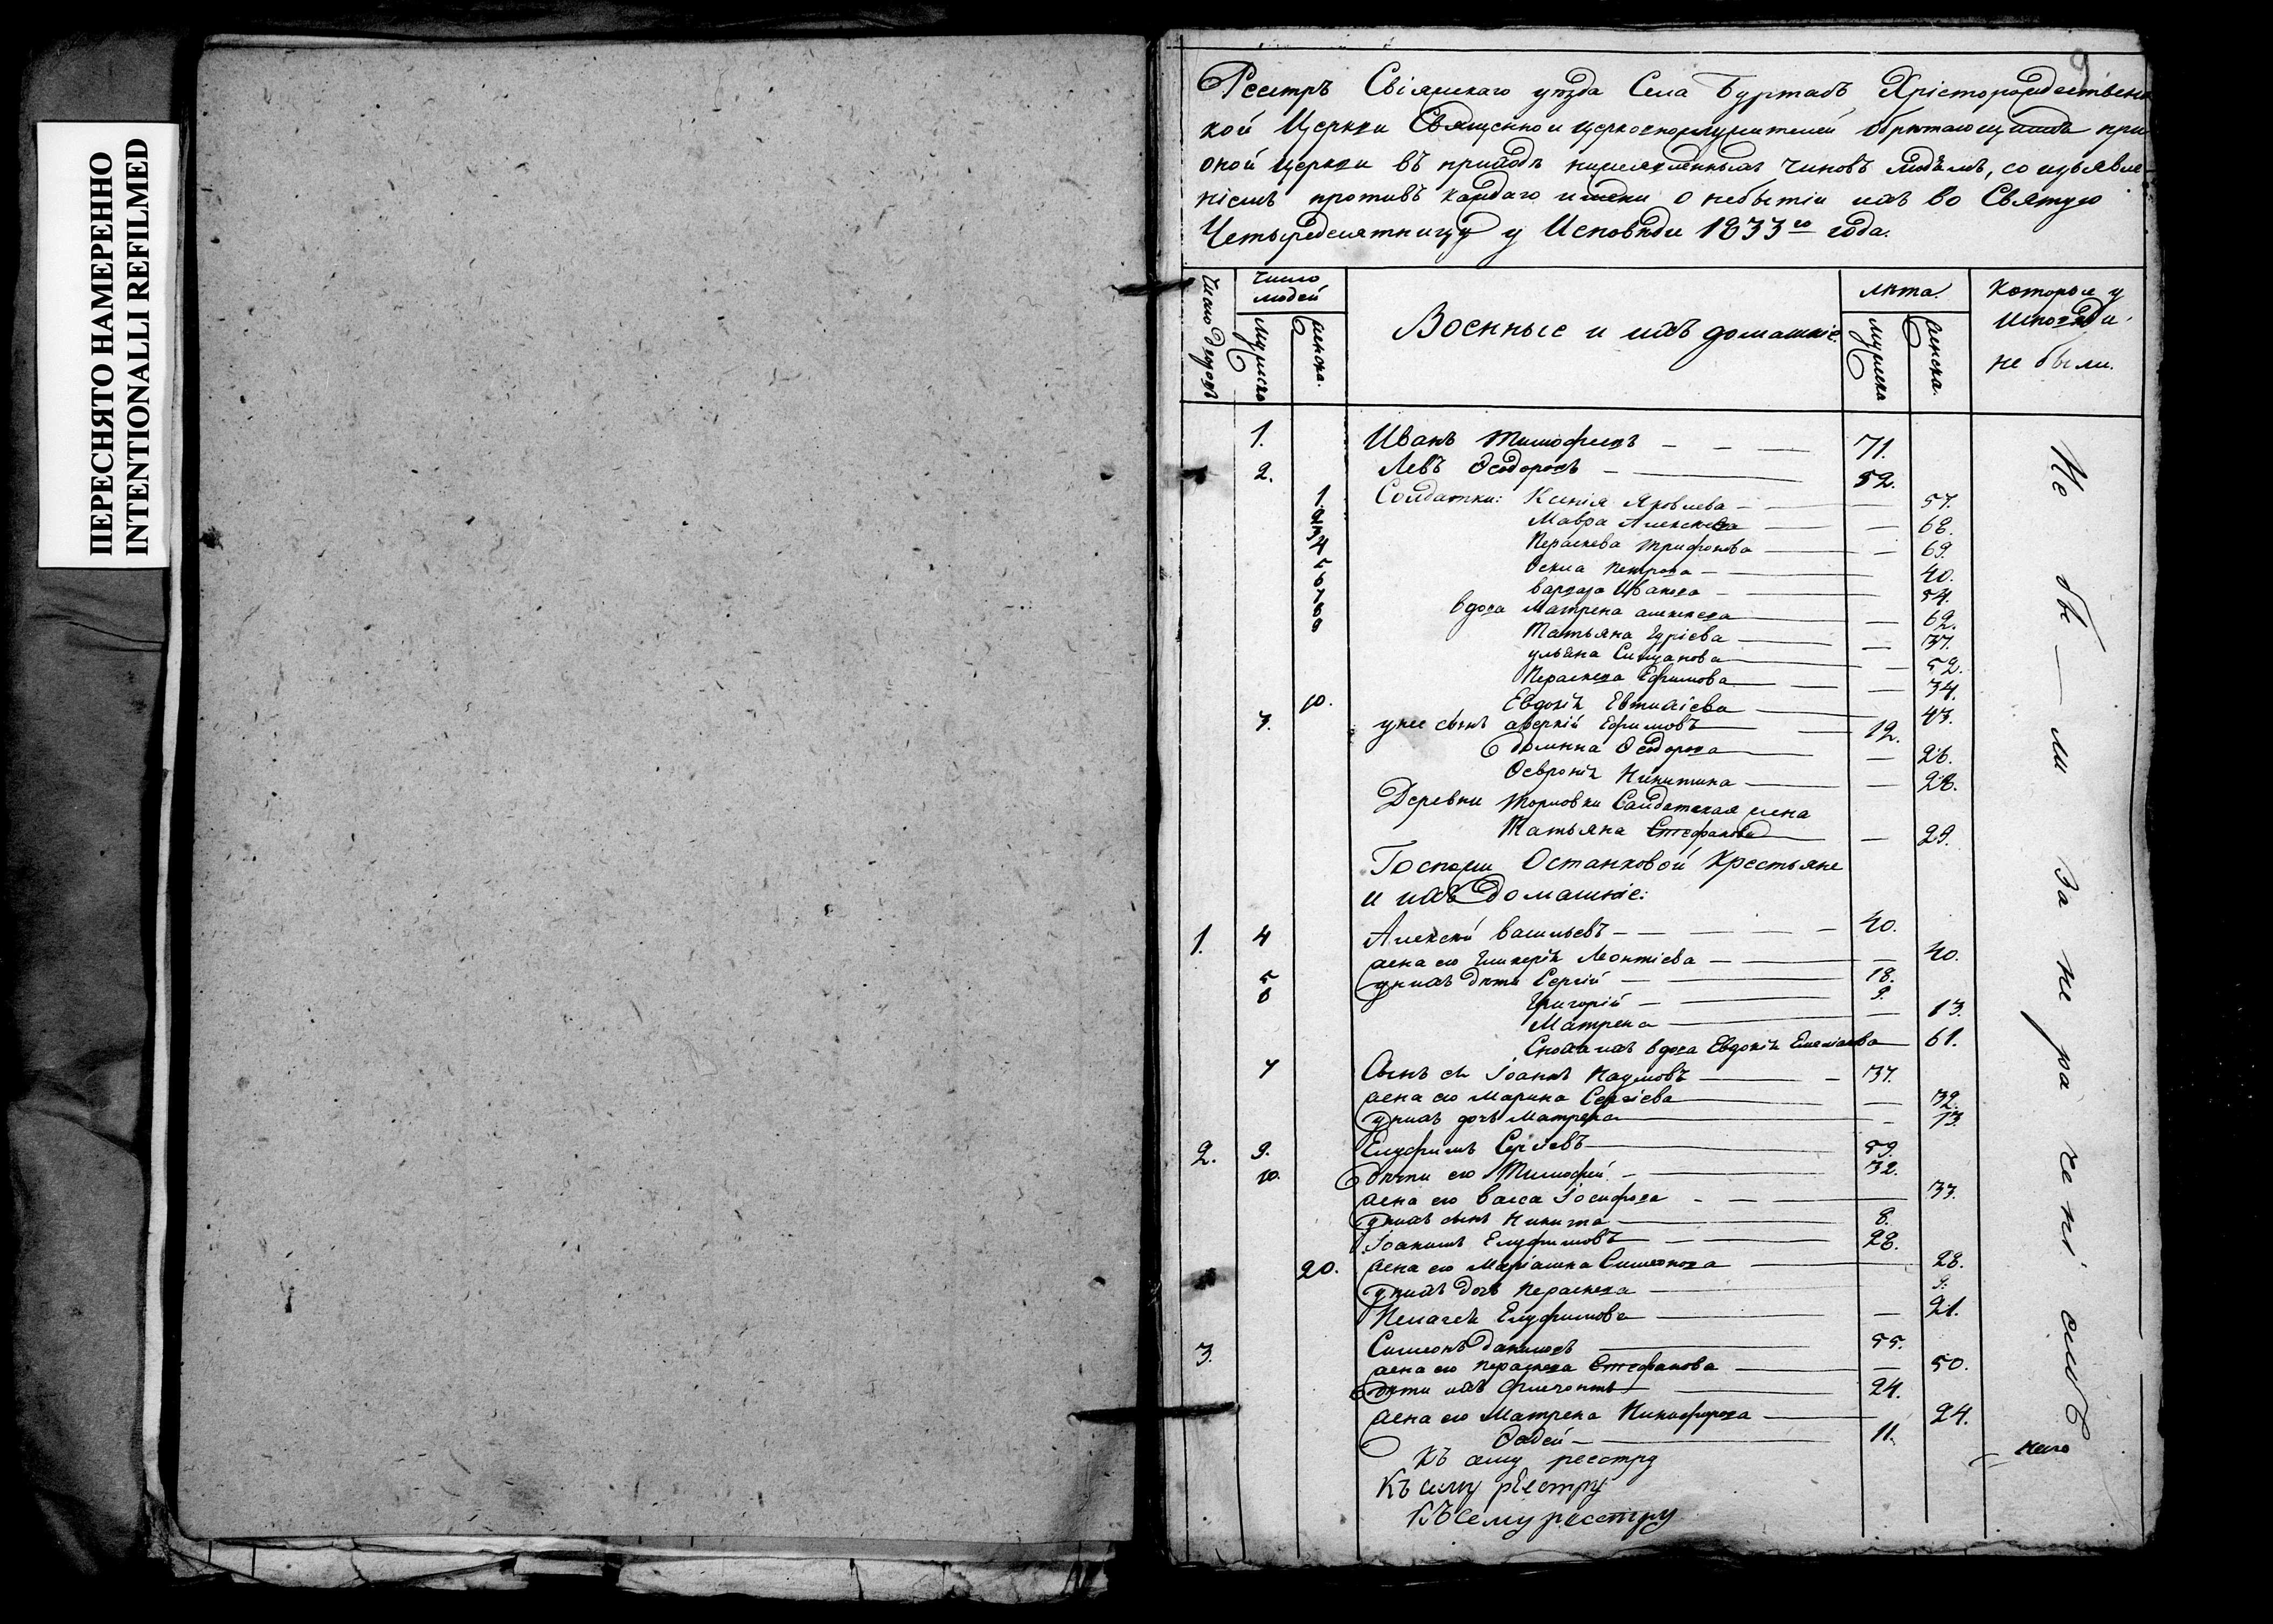 ПЕРЕСНЯТО НАМЕРЕННО
INTENTIONALLI REFILMED
9
Реестръ Свіяжскаго уѣзда Села Буртасъ Хрісторождествен
кой Церкви Священно и церковнослужителей обрѣтающимся при
оной церкви въ приходѣ нижеявленныхъ чиновъ людѣмъ, со изъявле-
ніемъ противъ каждаго имени о небытіи ихъ во Святую
Четыредесятницу у Исповѣди 1833го года.
Число дворовъ
Число людей
Мужеска
Женска.
Военные и ихъ домашніе.
лѣта.
мужеска
Женска.
Которые у Исповѣди не были.
1. Иванъ Тимофеевъ 71.
2. Левъ Ѳеодоровъ 52.
1 Солдатки: Ксенія Яковлева 57.
2 Мавра Алексѣева 68.
3 Пераскева Трифонова 69.
4 Ѳекла Петрова 40.
5 Варвара Иванова 54.
6 вдова Матрена алексѣева 62.
7 Татьяна Гуріева 37.
8 ульяна Степанова 52.
9 Пераскева Ефимова 34.
10. Евдокія Евтихіева 43.
3. у нее сынъ аверкій Ефимовъ 12.
домнна Ѳеодорова 26.
Ѳевронія Никитина 28.
Деревни Солдатская жена
Татьяна Стефанова 29.
Госпожи Останковой Крестьяне
и ихъ домашніе:
1. 4 Алексѣй Васильевъ 40.
жена его Гликерія Леонтіева 40.
5 у нихъ дѣти Сергій 18.
6 Григорій 9.
Матрена 13.
Сноха ихъ вдова Евдокія Емеліанова 61.
7 Сынъ ея Іоаннъ Наумовъ 37.
жена его Марина Сергіева 32.
у нихъ дочь Матрена 13.
2. 9. Елуфимъ Сергіевъ 59.
10. дѣти его Тимофей 32.
жена его Васса Іосифова 33.
у нихъ сынъ Никита 8.
Іоакимъ Елуфимовъ 28.
20. жена его Маріамна Симеонова 28.
у нихъ дочь Пераскева 9.
Пелагея Елуфимова 21.
3. Симеонъ Даниловъ 55.
жена его Пераскева Стефанова 50.
дѣти ихъ Филимонъ 24.
жена его Матрена Никифорова 24.
Ѳадей 11.
Къ сему реестру
Къ сему реестру
Къ сему реестру
Не бы - ли за не ра че ні емъ